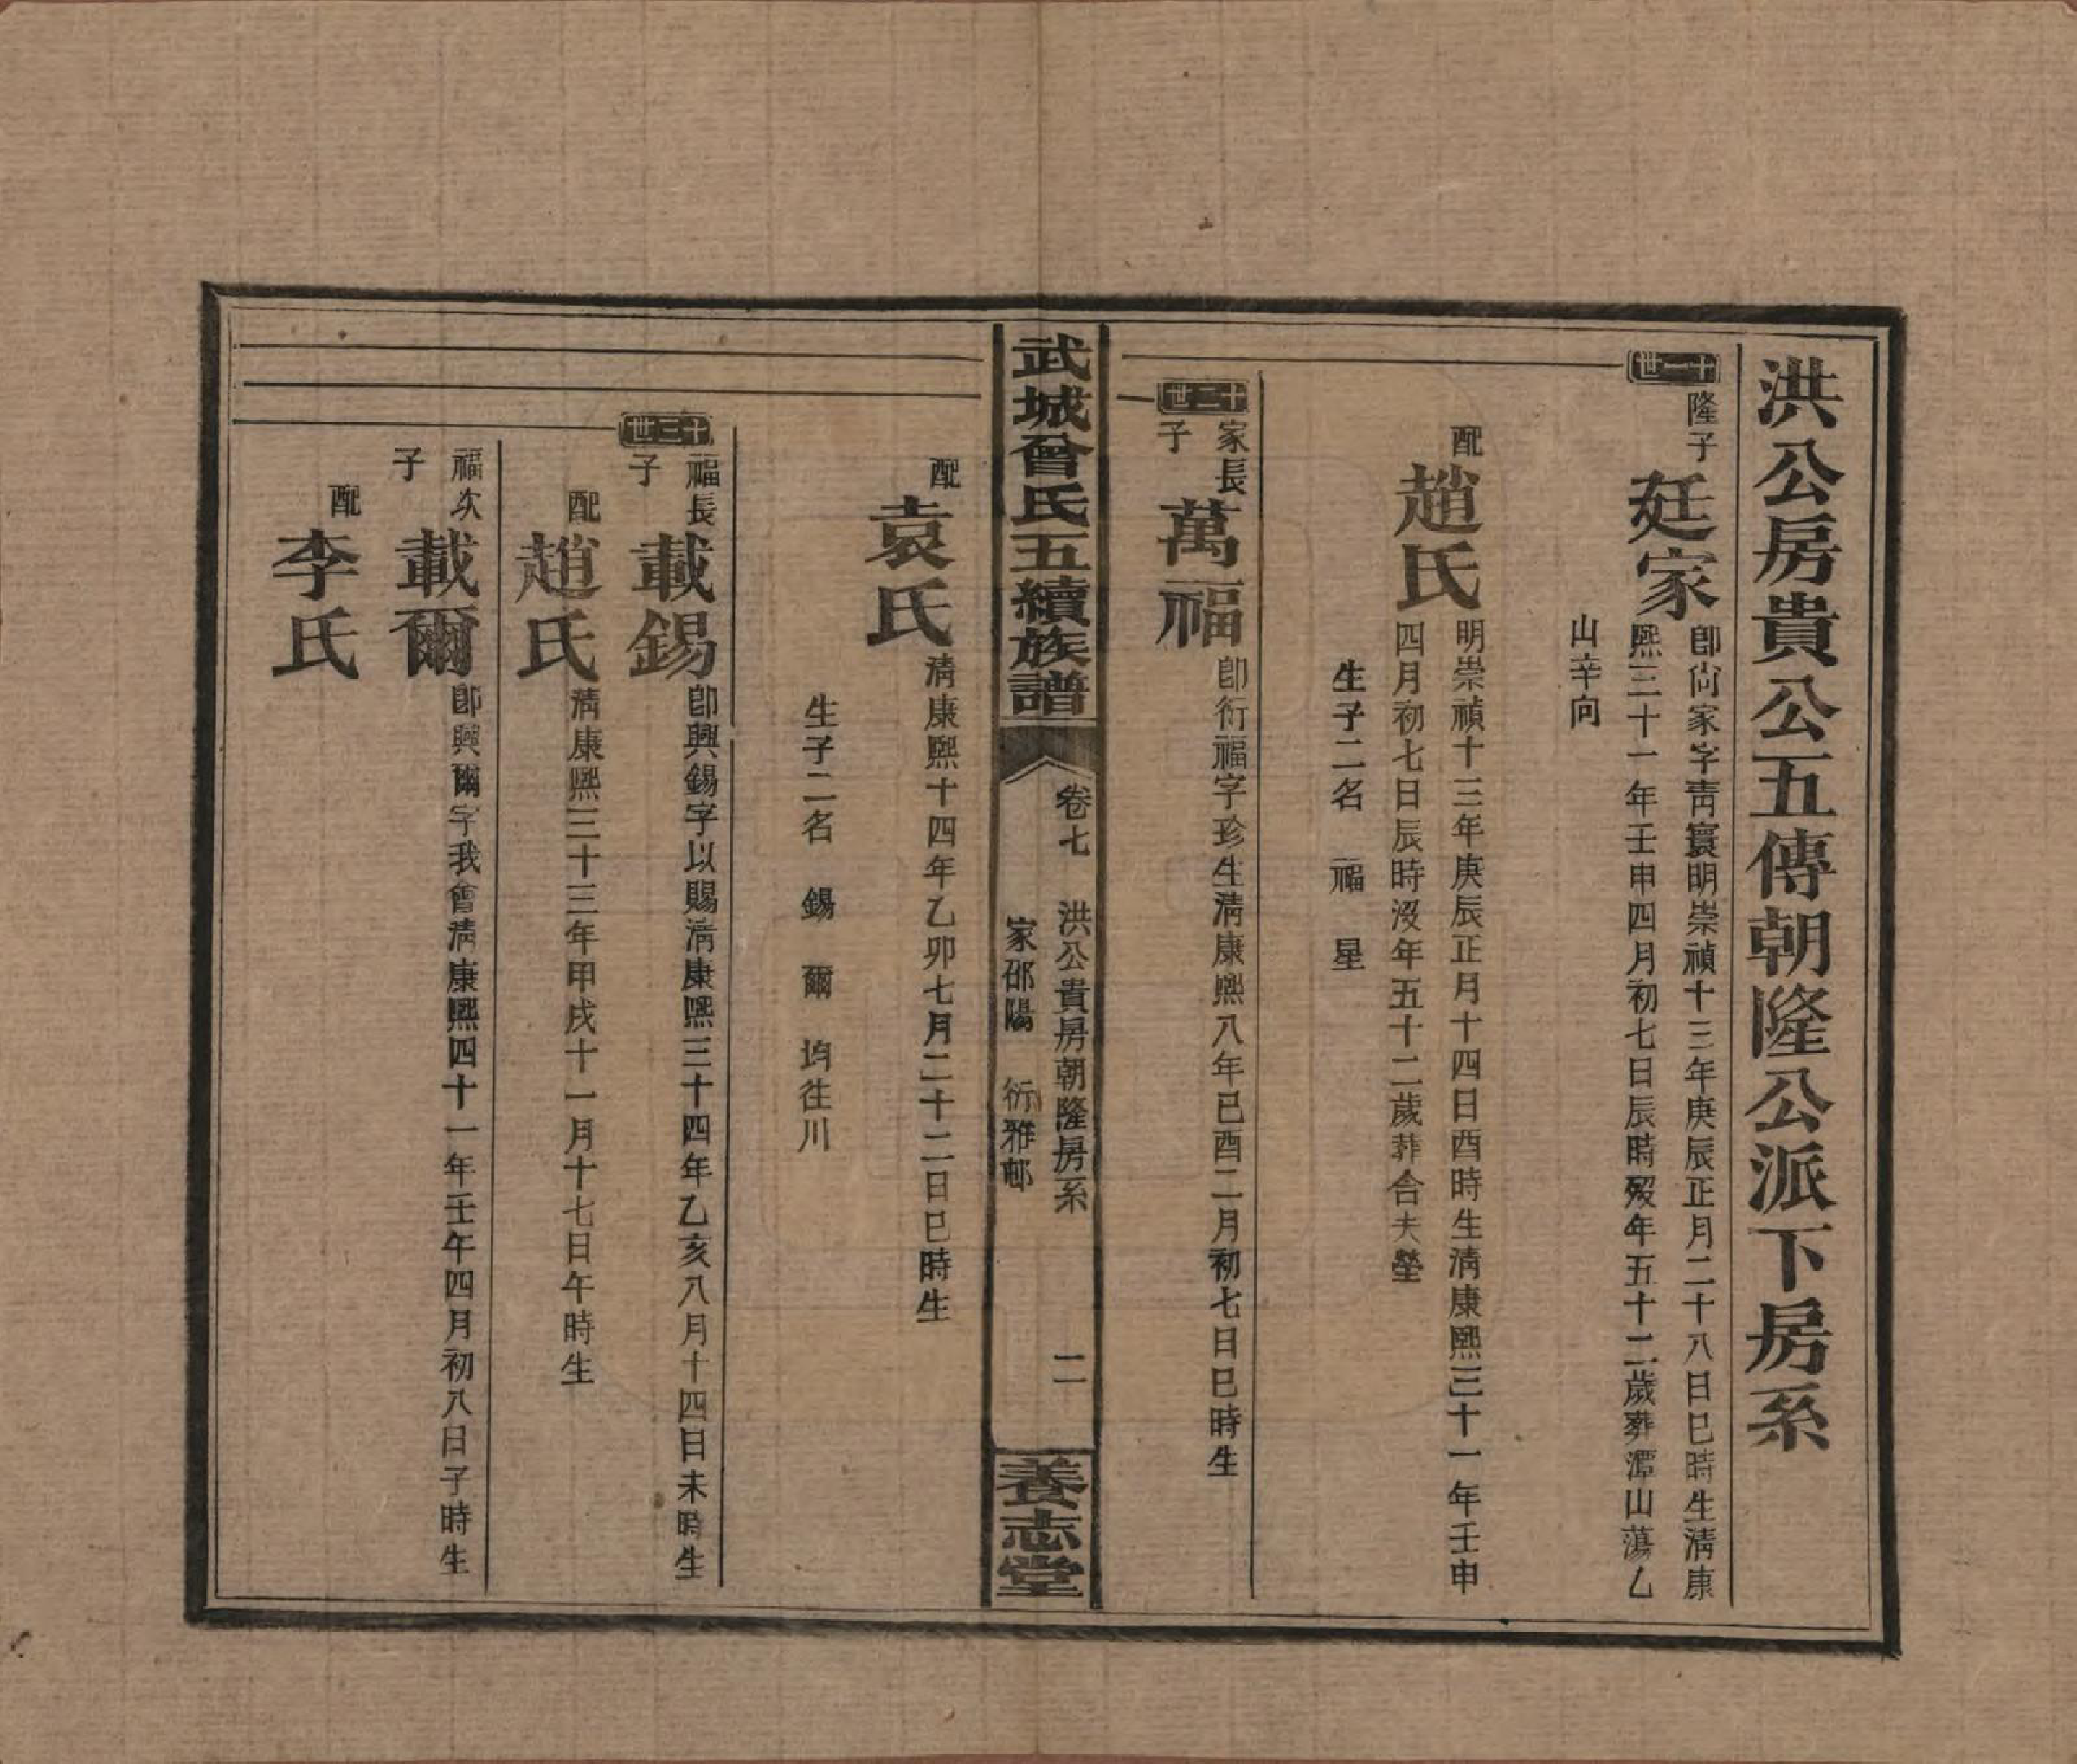 洪公房貴公五傳朝隆公派下房系
十一世
隆子
廷家
卽尙家字靑寰明崇禎十三年庚辰正月二十八日巳時生淸康
熙三十一年壬申四月初七日辰時歿年五十二歲葬潭山蕩乙
山辛向
配
趙氏
明崇禎十三年庚辰正月十四日酉時生淸康熙三十一年壬申
四月初七日辰時沒年五十二歲葬合夫塋
生子二名 福 星
十二世
家長
子
萬福
卽衍福字珍生淸康熙八年已酉二月初七日巳時生
武城曾氏五續族譜
卷七 洪公貴房朝隆房系
家邵陽 衍雅邨
二
養志堂
配
袁氏
淸康熙十四年乙卯七月二十二日巳時生
生子二名 錫 爾 均徃川
十三世
福長
子
載錫
卽興錫字以賜淸康熙三十四年乙亥八月十四日未時生
配
趙氏
淸康熙三十三年甲戌十一月十七日午時生
福次
子
載爾
卽興爾字我會淸康熙四十一年壬午四月初八日子時生
配
李氏